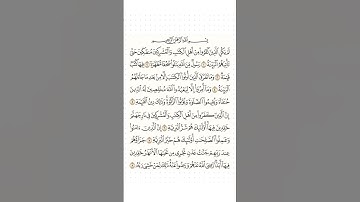 بِسْمِ اللَّهِ الرَّحْمَٰنِ الرَّحِيمِ
لَمْ يَكُنِ الَّذِينَ كَفَرُوا مِنْ أَهْلِ الْكِتَابِ وَالْمُشْرِكِينَ مُنفَكِّينَ حَتَّىٰ
تَأْتِيَهُمُ الْبَيِّنَةُ ١ رَسُولٌ مِّنَ اللَّهِ يَتْلُو صُحُفًا مُّطَهَّرَةً ٢ فِيهَا كُتُبٌ
قَيِّمَةٌ ٣ وَمَا تَفَرَّقَ الَّذِينَ أُوتُوا الْكِتَابَ إِلَّا مِن بَعْدِ مَا جَاءَتْهُمُ
الْبَيِّنَةُ ٤ وَمَا أُمِرُوا إِلَّا لِيَعْبُدُوا اللَّهَ مُخْلِصِينَ لَهُ الدِّينَ
حُنَفَاءَ وَيُقِيمُوا الصَّلَاةَ وَيُؤْتُوا الزَّكَاةَ وَذَٰلِكَ دِينُ الْقَيِّمَةِ ٥
إِنَّ الَّذِينَ كَفَرُوا مِنْ أَهْلِ الْكِتَابِ وَالْمُشْرِكِينَ فِي نَارِ جَهَنَّمَ
خَالِدِينَ فِيهَا أُولَٰئِكَ هُمْ شَرُّ الْبَرِيَّةِ ٦ إِنَّ الَّذِينَ آمَنُوا
وَعَمِلُوا الصَّالِحَاتِ أُولَٰئِكَ هُمْ خَيْرُ الْبَرِيَّةِ ٧ جَزَاؤُهُمْ
عِندَ رَبِّهِمْ جَنَّاتُ عَدْنٍ تَجْرِي مِن تَحْتِهَا الْأَنْهَارُ خَالِدِينَ
فِيهَا أَبَدًا رَّضِيَ اللَّهُ عَنْهُمْ وَرَضُوا عَنْهُ ذَٰلِكَ لِمَنْ خَشِيَ رَبَّهُ ٨